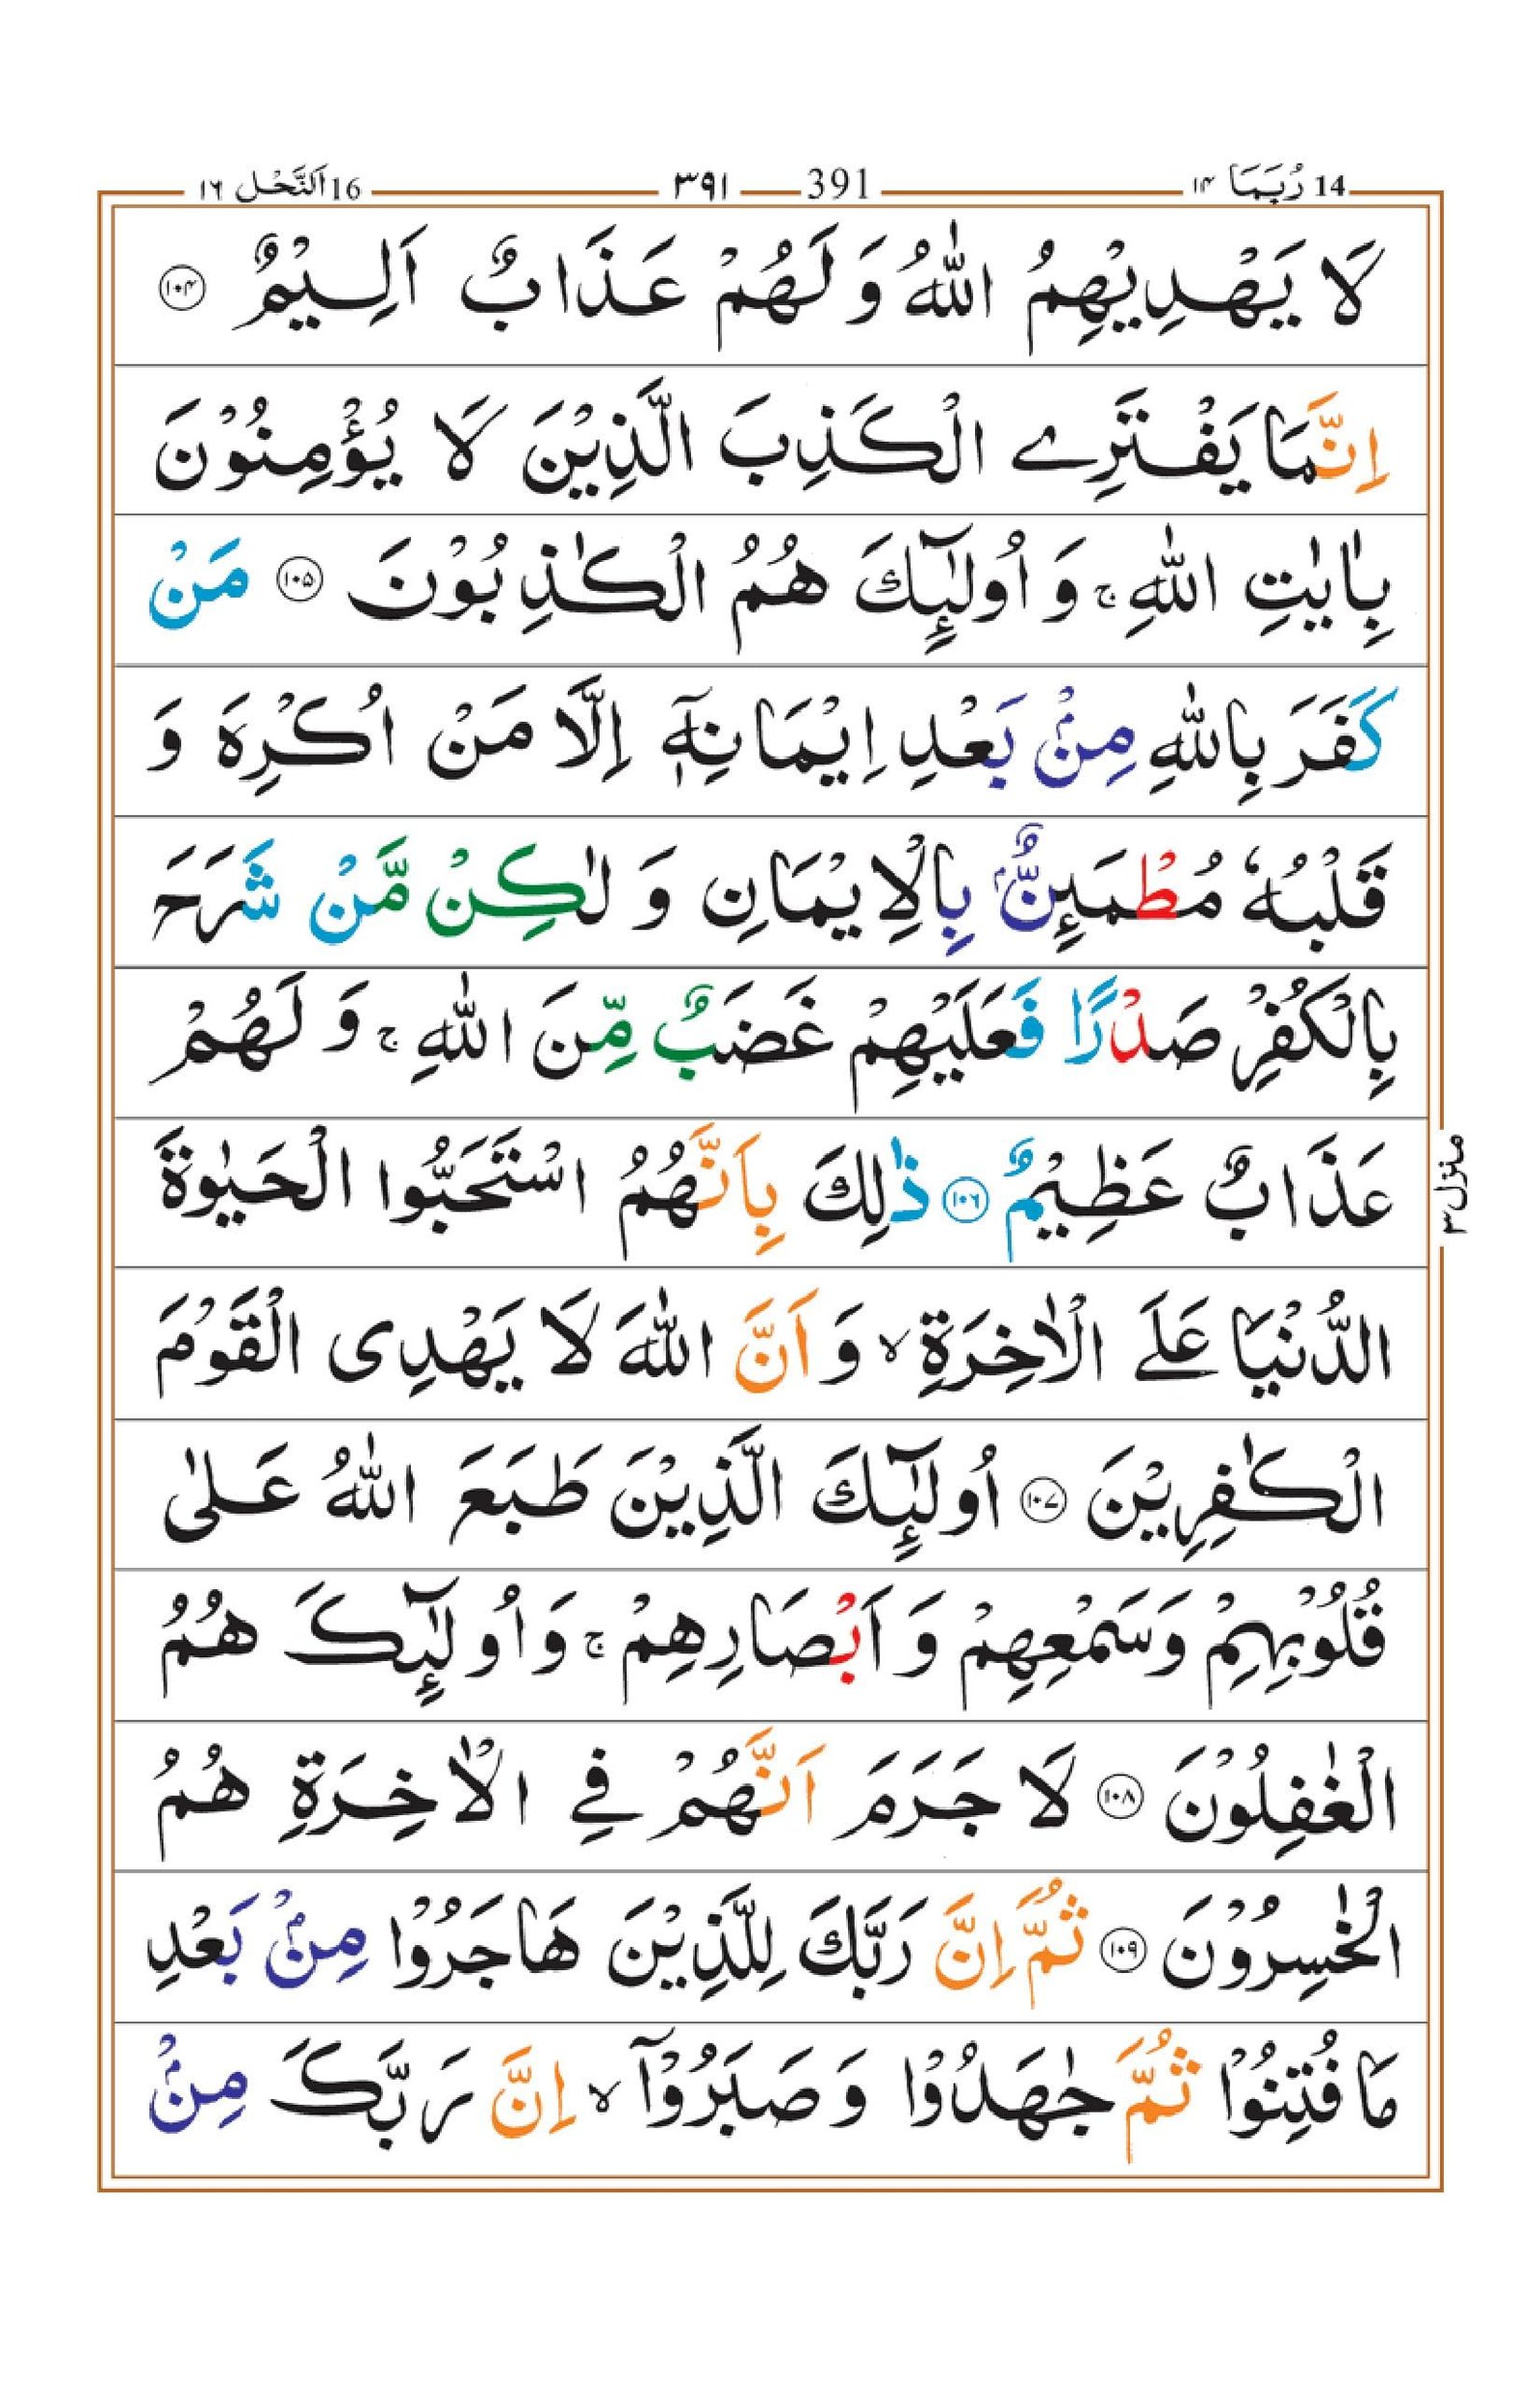 14 رُبَمَا ١٤
391 ٣٩١
16 اَلنَّحْل ١٦
لَا يَهْدِيْهِمُ اللّٰهُ وَ لَهُمْ عَذَابٌ اَلِيْمٌ ۝١٠٤
اِنَّمَا يَفْتَرِے الْكَذِبَ الَّذِيْنَ لَا يُؤْمِنُوْنَ
بِاٰيٰتِ اللّٰهِ ۚ وَ اُولٰٓئِكَ هُمُ الْكٰذِبُوْنَ ۝١٠٥ مَنْ
كَفَرَ بِاللّٰهِ مِنْۢ بَعْدِ اِيْمَانِهٖٓ اِلَّا مَنْ اُكْرِهَ وَ
قَلْبُهٗ مُطْمَئِنٌّۢ بِالْاِيْمَانِ وَ لٰكِنْ مَّنْ شَرَحَ
بِالْكُفْرِ صَدْرًا فَعَلَيْهِمْ غَضَبٌ مِّنَ اللّٰهِ ۚ وَ لَهُمْ
عَذَابٌ عَظِيْمٌ ۝١٠٦ ذٰلِكَ بِاَنَّهُمُ اسْتَحَبُّوا الْحَيٰوةَ
الدُّنْيَا عَلَے الْاٰخِرَةِ ۙ وَ اَنَّ اللّٰهَ لَا يَهْدِی الْقَوْمَ
الْكٰفِرِيْنَ ۝١٠٧ اُولٰٓئِكَ الَّذِيْنَ طَبَعَ اللّٰهُ عَلٰى
قُلُوْبِهِمْ وَ سَمْعِهِمْ وَ اَبْصَارِهِمْ ۚ وَ اُولٰٓئِكَ هُمُ
الْغٰفِلُوْنَ ۝١٠٨ لَا جَرَمَ اَنَّهُمْ فِے الْاٰخِرَةِ هُمُ
الْخٰسِرُوْنَ ۝١٠٩ ثُمَّ اِنَّ رَبَّكَ لِلَّذِيْنَ هَاجَرُوْا مِنْۢ بَعْدِ
مَا فُتِنُوْا ثُمَّ جٰهَدُوْا وَ صَبَرُوْۤا ۙ اِنَّ رَبَّكَ مِنْۢ
منزل ٣